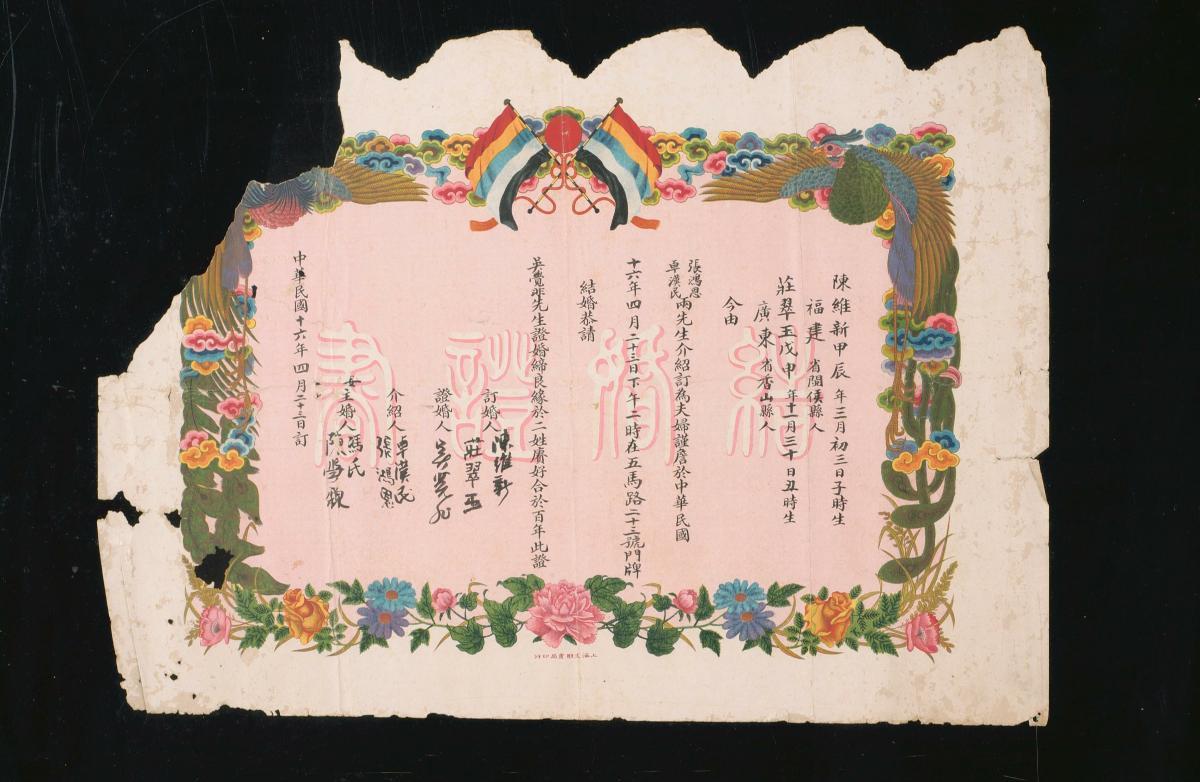 陳維新甲辰年三月初三日子時生
福建省閩侯縣人
莊翠玉戊申年十一月三十日丑時生
廣東省香山縣人
今由
張鴻恩
卓漢民
兩先生介紹訂為夫婦謹詹於中華民國
十六年四月二十三日下午二時在五馬路二十三號門牌
結婚恭請
吳覺非先生證婚締良緣於二姓賡好合於百年此證
訂婚人
陳維新
莊翠玉
證婚人
吳覺非
介紹人
卓漢民
張鴻恩
女主婚人
馮氏
中華民國十六年四月二十三日訂
結婚證書